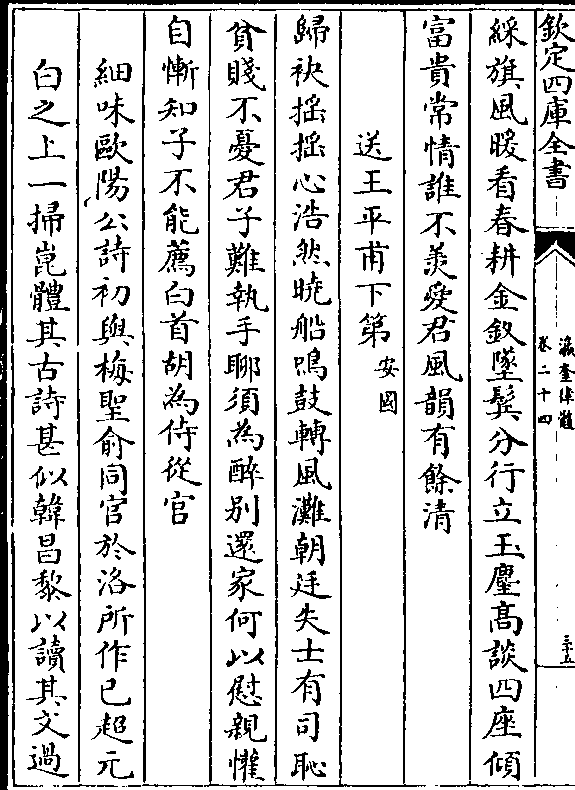 欽定四庫全書
瀛奎律髓
卷二十四
三十五
綵旗風暖看春耕金釵墜鬢分行立玉麈髙談四座傾
富貴常情誰不羡愛君風韻有餘清
送王平甫下第安國
歸袂揺揺心浩然曉船鳴鼓轉風灘朝廷失士有司恥
貧賤不憂君子難執手聊須為醉别還家何以慰親懽
自慚知子不能薦白首胡為侍從官
細味歐陽公詩初與梅聖俞同官於洛所作已超元
白之上一掃崑體其古詩甚似韓昌黎以讀其文過